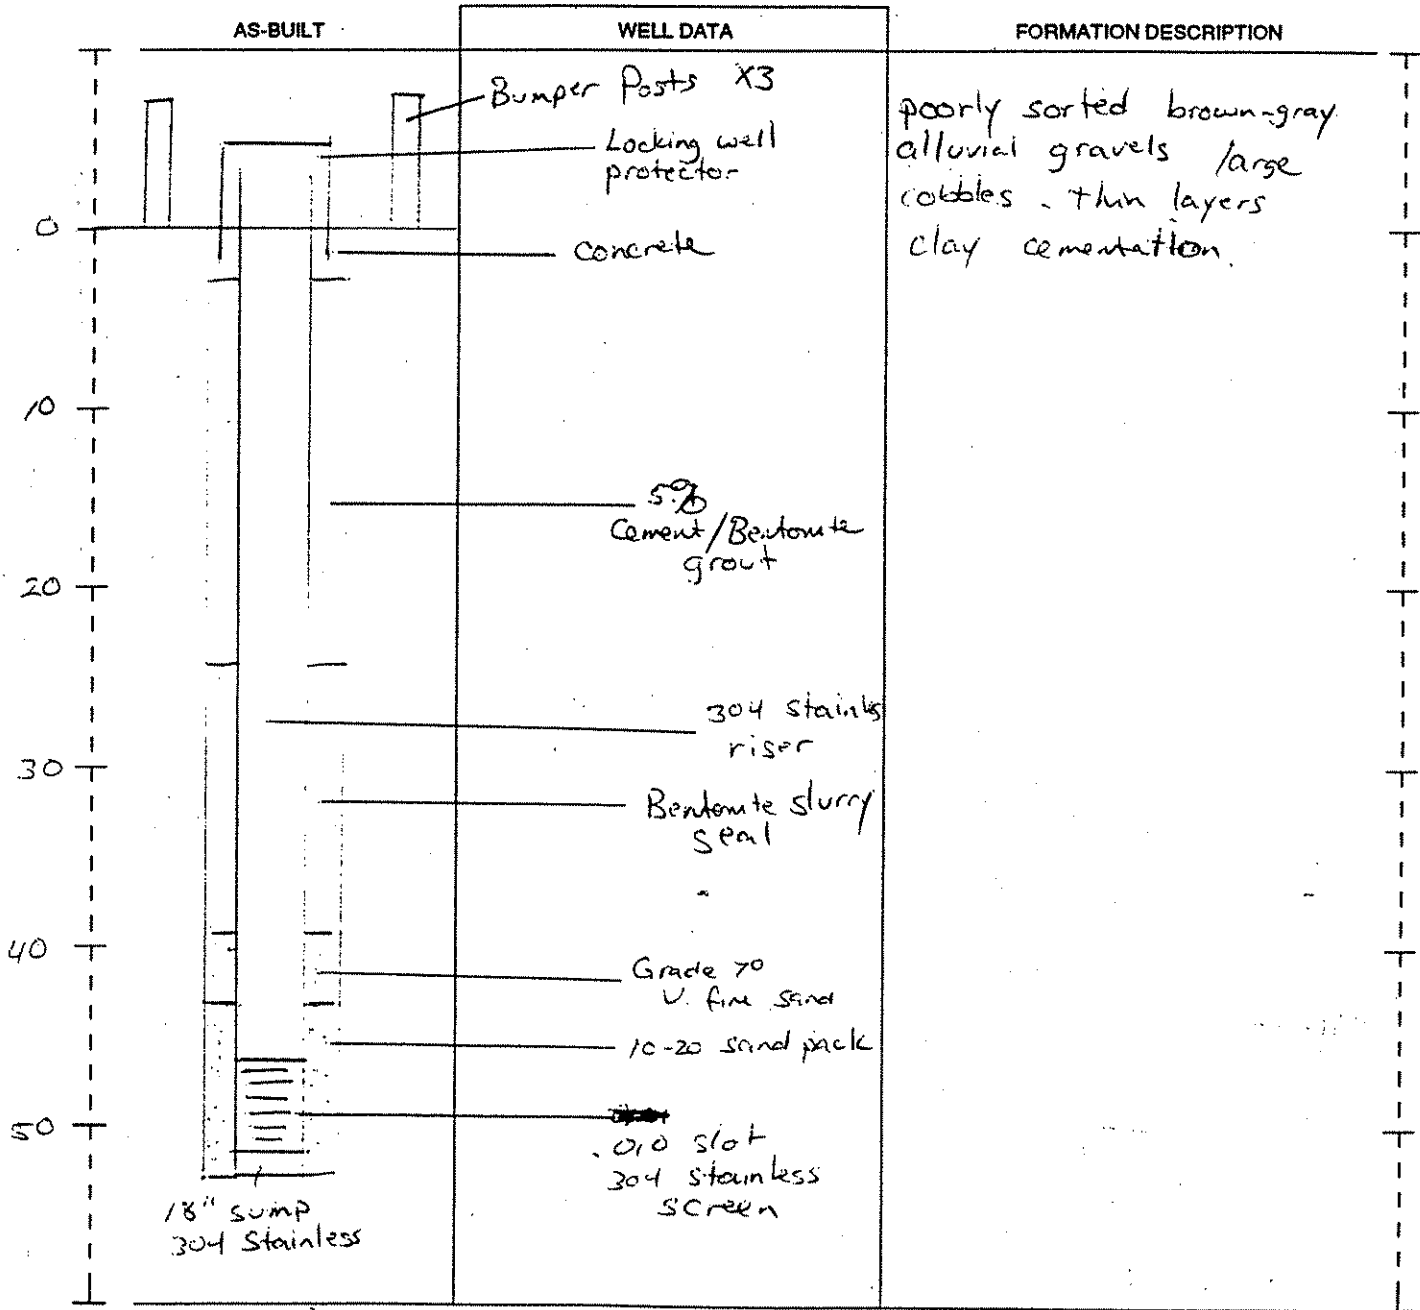 AS-BUILT
WELL DATA
FORMATION DESCRIPTION
Bumper Posts X3
Locking well
protector
concrete
5%
Cement/Bentonite
grout
304 stainls
riser
Bentonite slurry
seal
Grade 70
v. fine sand
10-20 sand pack
.010 slot
304 stainless
screen
18" sump
304 Stainless
poorly sorted brown-gray
alluvial gravels large
cobbles. thin layers
clay cementation.
0
10
20
30
40
50